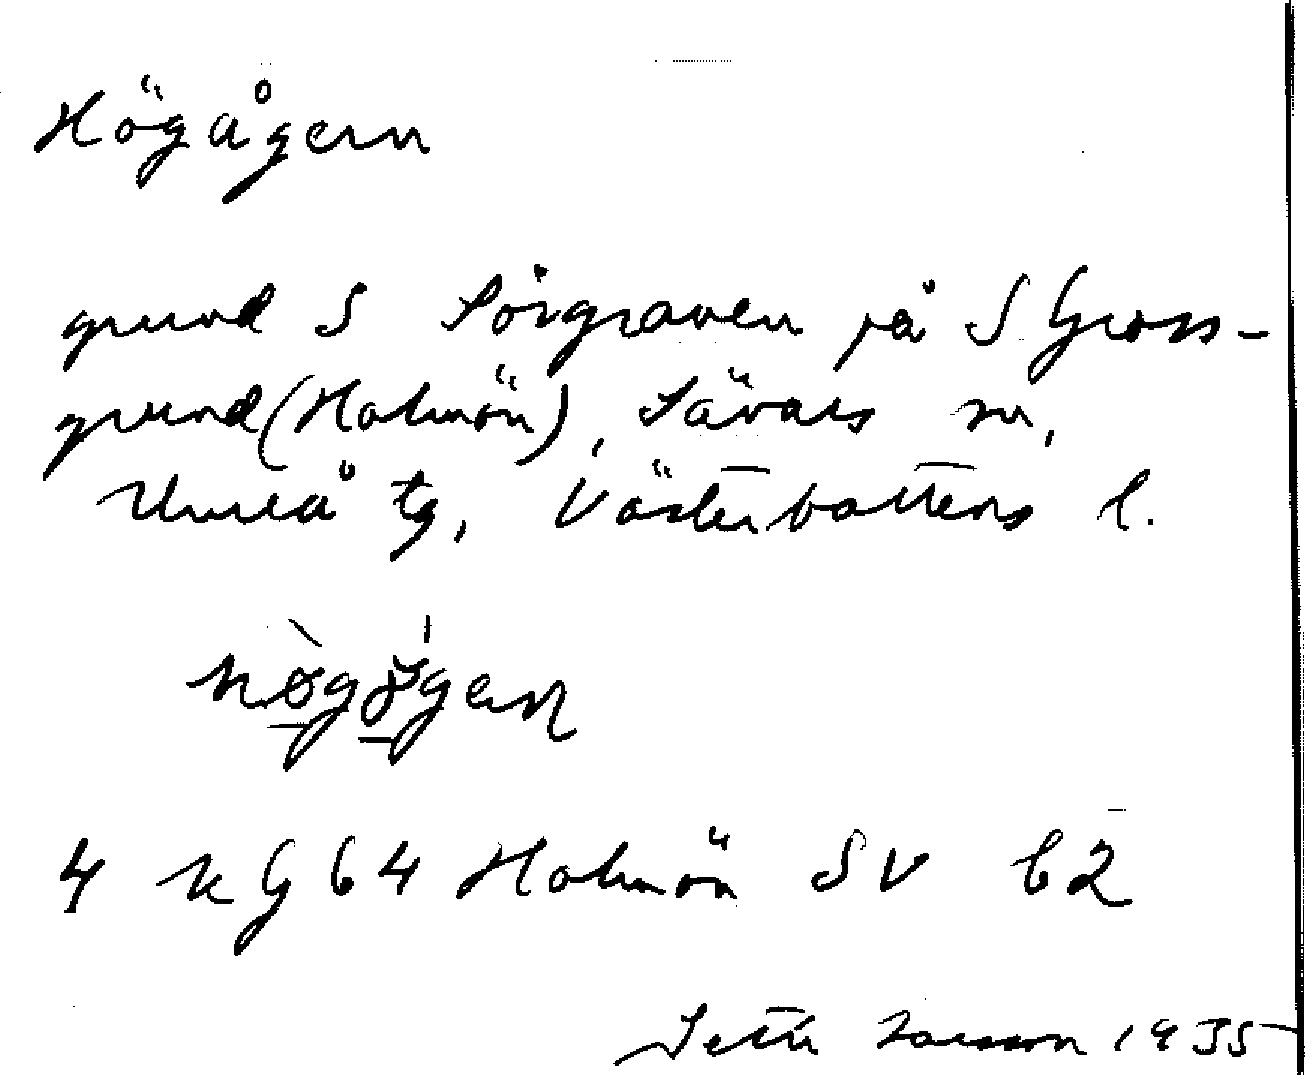 Högågern
grund S Sörgraven på S Gross-
grund (Holmön), Sävars sn,
Umeå tg, Västerbottens l.
4 KG 64 Holmön SV b2
Seth Larsson 1935